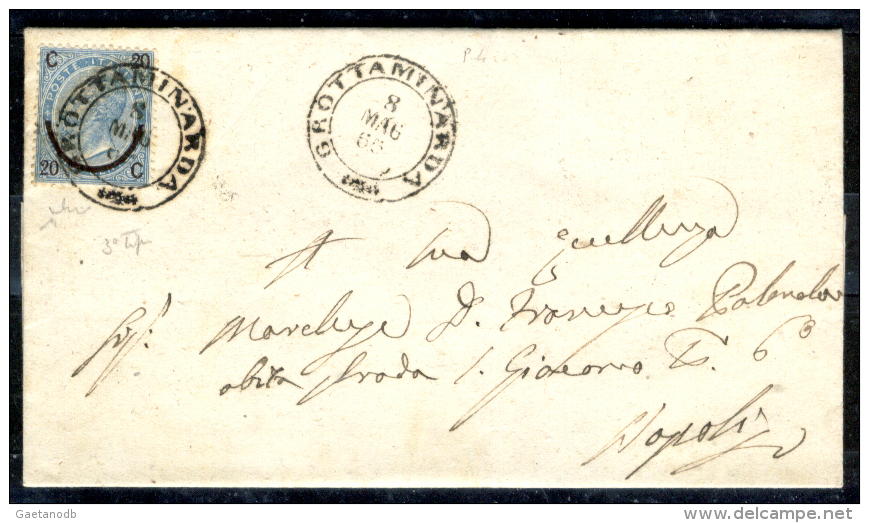 C 20
POSTE IT
20 C
GROTTAMINARDA
8
MAG
GROTTAMINARDA
8
MAG
66
P 4
3° tip
A Sua Eccellenza
Marchese D. Francesco
abita Strada S. Giacomo
Napoli
Gaetanodb
delcampe.net